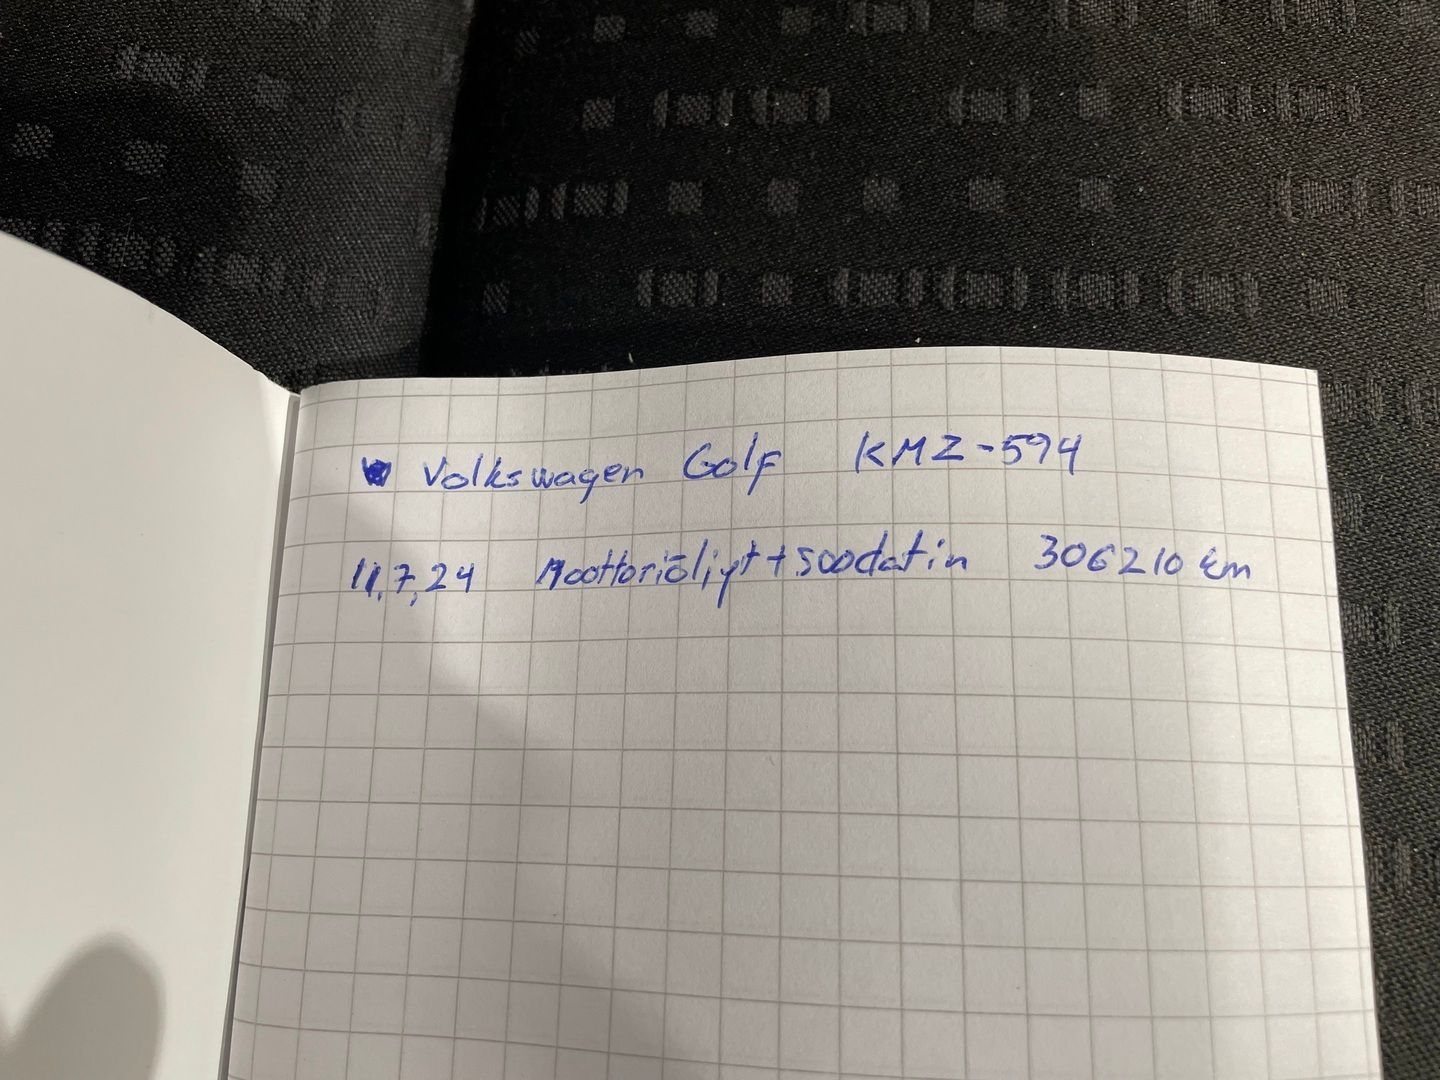 Volkswagen Golf KMZ-594
11.7.24 Moottoriöljyt + suodatin 306210 km